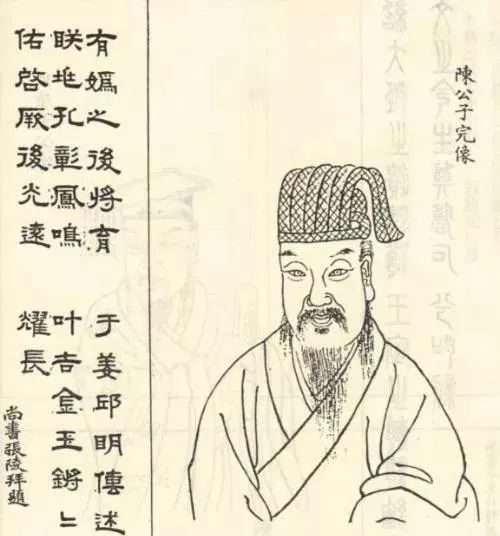 陳公子完像
有嬀之後將育于姜邱明傳述
眹垗孔彰鳳鳴叶吉金玉鏘〻
佑啓厥後光遠耀長
尚書張陵拜題